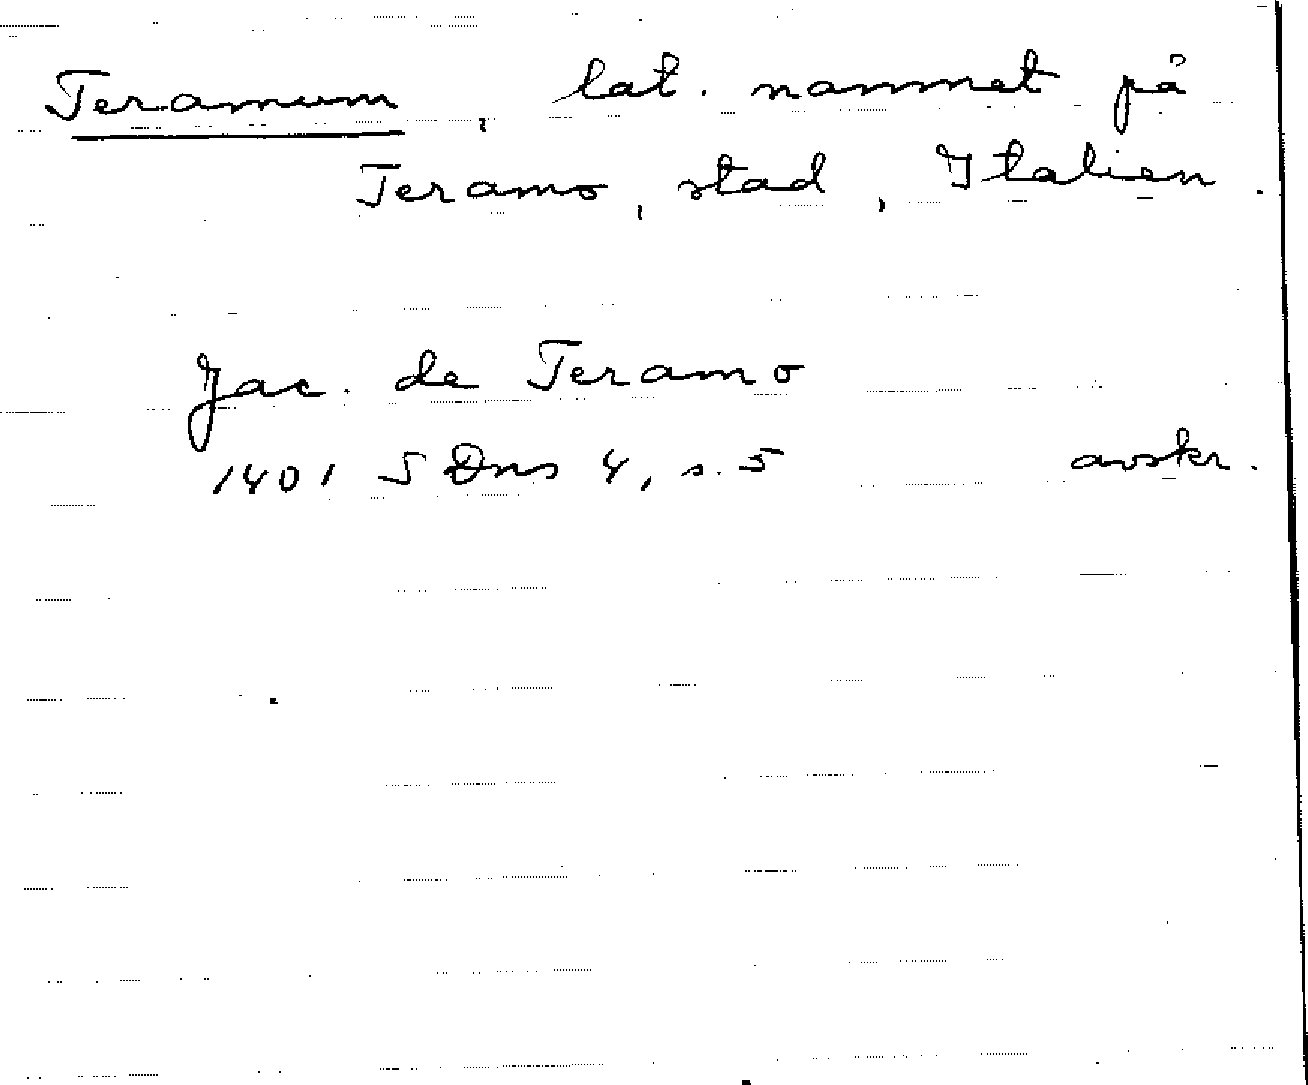 Teramum, lat. namnet på
Teramo, stad, Italien.
Jac. de Teramo
1401 SDns 4, s. 5 avskr.